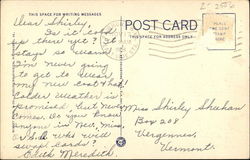 THIS SPACE FOR WRITING MESSAGES
POST CARD
THIS SPACE FOR ADDRESS ONLY
Dear Shirley,
Is it cold
up there yet? It
stays so warm
I'm never going
to get to wear
my new coat.
Colder weather is
promised but never
comes. Do you know
anyone in
U.S.A. who will
swap cards?
Edith Meredith
Miss Shirley Sheehan
Box 208
Vergennes
Vermont.